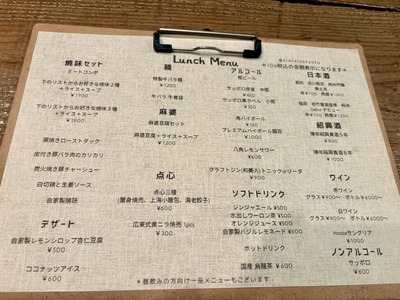 Lunch Menu
※10%税込の金額表示になります※
焼味セット
ミートコンボ
下のリストからお好きな焼味2種
+ライス+スープ
¥1700
下のリストからお好きな焼味3種
+ライス+スープ
¥1900
窯焼きローストダック
皮付き豚バラ肉のカリカリ
炭火焼き豚チャーシュー
白切鶏と生姜ソース
自家製腸詰
デザート
自家製レモンシロップ杏仁豆腐
¥500
ココナッツアイス
¥600
麺
特製牛バラ麺
¥1200
牛バラ 牛胃袋
麻婆
麻婆豆腐セット
麻婆豆腐+ライス+スープ
¥1200
点心
点心三種
(蟹焼売、上海小籠包、海老餃子)
¥600
広東式黄ニラ焼売 1pcs
¥300
アルコール
瓶ビール
サッポロ赤星 中瓶
¥800
サッポロ黒ラベル 小瓶
¥650
角ハイボール
¥500
プレミアムハイボール 韻苔
¥1000
八角レモンサワー
¥600
クラフトジン(和美人)トニックorソーダ
¥900
ソフトドリンク
ジンジャエール ¥500
水出しウーロン茶 ¥500
オレンジジュース ¥500
自家製バジルレモネード ¥600
ホットドリンク
国産 烏龍茶 ¥600
日本酒
¥900
紹興酒
¥800
¥1000
ワイン
赤ワイン
グラス¥900~ ボトル¥6000~
白ワイン
グラス¥900~ ボトル¥6000~
Houseサングリア
¥1000
ノンアルコール
サッポロ
¥600
※昼飲みの方向け一品メニューもございます※